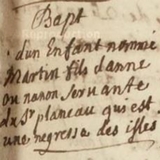 Bapt
d'un Enfant nommé
Martin fils d'anne
ou nanon, servante
du Sr planeau qui est
une negresse des isles.